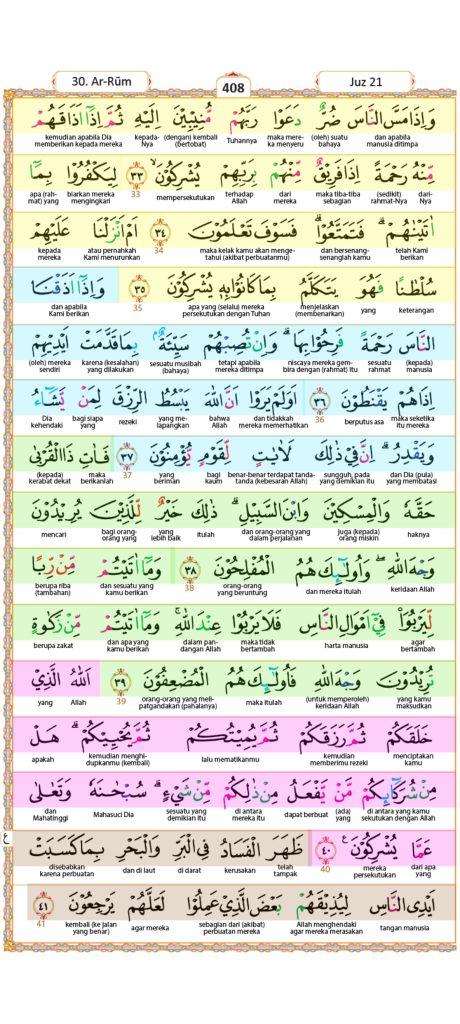 30. Ar-Rūm
408
Juz 21
وَاِذَا مَسَّ النَّاسَ ضُرٌّ دَعَوْا رَبَّهُمْ مُّنِيْبِيْنَ اِلَيْهِ ثُمَّ اِذَآ اَذَاقَهُمْ
dan apabila manusia ditimpa (oleh) suatu bahaya maka mereka menyeru Tuhannya (dengan) kembali (bertobat) kepada-Nya kemudian apabila Dia memberikan kepada mereka
مِّنْهُ رَحْمَةً اِذَا فَرِيْقٌ مِّنْهُمْ بِرَبِّهِمْ يُشْرِكُوْنَۙ ٣٣ لِيَكْفُرُوْا بِمَآ
dari-Nya (sedikit) rahmat-Nya maka tiba-tiba sebagian dari mereka terhadap Allah mempersekutukan 33 biarkan mereka mengingkari apa (rahmat) yang
اٰتَيْنٰهُمْۗ فَتَمَتَّعُوْاۗ فَسَوْفَ تَعْلَمُوْنَ ٣٤ اَمْ اَنْزَلْنَا عَلَيْهِمْ
telah Kami berikan dan bersenang-senanglah kamu maka kelak kamu akan mengetahui (akibat perbuatanmu) 34 atau pernahkah Kami menurunkan kepada mereka
سُلْطٰنًا فَهُوَ يَتَكَلَّمُ بِمَا كَانُوْا بِهٖ يُشْرِكُوْنَ ٣٥ وَاِذَآ اَذَقْنَا
keterangan yang menjelaskan (membenarkan) apa yang (selalu) mereka persekutukan dengan Tuhan 35 dan apabila Kami berikan
النَّاسَ رَحْمَةً فَرِحُوْا بِهَاۗ وَاِنْ تُصِبْهُمْ سَيِّئَةٌ ۢبِمَا قَدَّمَتْ اَيْدِيْهِمْ
(kepada) manusia sesuatu rahmat niscaya mereka gembira dengan (rahmat) itu tetapi apabila mereka ditimpa sesuatu musibah (bahaya) karena (kesalahan) yang dilakukan (oleh) mereka sendiri
اِذَا هُمْ يَقْنَطُوْنَ ٣٦ اَوَلَمْ يَرَوْا اَنَّ اللّٰهَ يَبْسُطُ الرِّزْقَ لِمَنْ يَّشَاۤءُ
maka seketika itu mereka berputus asa 36 dan tidakkah mereka memerhatikan bahwa Allah yang melapangkan rezeki bagi siapa Dia kehendaki
وَيَقْدِرُۗ اِنَّ فِيْ ذٰلِكَ لَاٰيٰتٍ لِّقَوْمٍ يُّؤْمِنُوْنَ ٣٧ فَاٰتِ ذَا الْقُرْبٰى
dan Dia (pula) yang membatasi sungguh, pada yang demikian itu benar-benar terdapat tanda-tanda (kebesaran Allah) bagi kaum yang beriman 37 maka berikanlah (kepada) kerabat dekat
حَقَّهٗ وَالْمِسْكِيْنَ وَابْنَ السَّبِيْلِۗ ذٰلِكَ خَيْرٌ لِّلَّذِيْنَ يُرِيْدُوْنَ
haknya juga (kepada) orang miskin dan orang-orang yang dalam perjalanan itulah yang lebih baik bagi orang-orang yang mencari
وَجْهَ اللّٰهِۖ وَاُولٰۤىِٕكَ هُمُ الْمُفْلِحُوْنَ ٣٨ وَمَآ اٰتَيْتُمْ مِّنْ رِّبًا
keridaan Allah dan mereka itulah orang-orang yang beruntung 38 dan sesuatu yang kamu berikan berupa riba (tambahan)
لِّيَرْبُوَا۠ فِيْٓ اَمْوَالِ النَّاسِ فَلَا يَرْبُوْا عِنْدَ اللّٰهِۚ وَمَآ اٰتَيْتُمْ مِّنْ زَكٰوةٍ
agar bertambah harta manusia maka tidak bertambah dalam pandangan Allah dan apa yang kamu berikan berupa zakat
تُرِيْدُوْنَ وَجْهَ اللّٰهِ فَاُولٰۤىِٕكَ هُمُ الْمُضْعِفُوْنَ ٣٩ اَللّٰهُ الَّذِيْ
yang kamu maksudkan (untuk memperoleh) keridaan Allah maka itulah orang-orang yang melipatgandakan (pahalanya) 39 Allah yang
خَلَقَكُمْ ثُمَّ رَزَقَكُمْ ثُمَّ يُمِيْتُكُمْ ثُمَّ يُحْيِيْكُمْۗ هَلْ
menciptakan kamu kemudian memberimu rezeki lalu mematikanmu kemudian menghidupkanmu (kembali) apakah
مِنْ شُرَكَاۤىِٕكُمْ مَّنْ يَّفْعَلُ مِنْ ذٰلِكُمْ مِّنْ شَيْءٍۗ سُبْحٰنَهٗ وَتَعٰلٰى
di antara yang kamu sekutukan dengan Allah (ada) yang dapat berbuat di antara mereka itu sesuatu yang demikian itu Mahasuci Dia dan Mahatinggi
عَمَّا يُشْرِكُوْنَ ٤٠ ظَهَرَ الْفَسَادُ فِى الْبَرِّ وَالْبَحْرِ بِمَا كَسَبَتْ
ع
dari apa yang mereka persekutukan 40 telah tampak kerusakan di darat dan di laut disebabkan karena perbuatan
اَيْدِى النَّاسِ لِيُذِيْقَهُمْ بَعْضَ الَّذِيْ عَمِلُوْا لَعَلَّهُمْ يَرْجِعُوْنَ ٤١
tangan manusia Allah menghendaki agar mereka merasakan sebagian dari (akibat) perbuatan mereka agar mereka kembali (ke jalan yang benar) 41